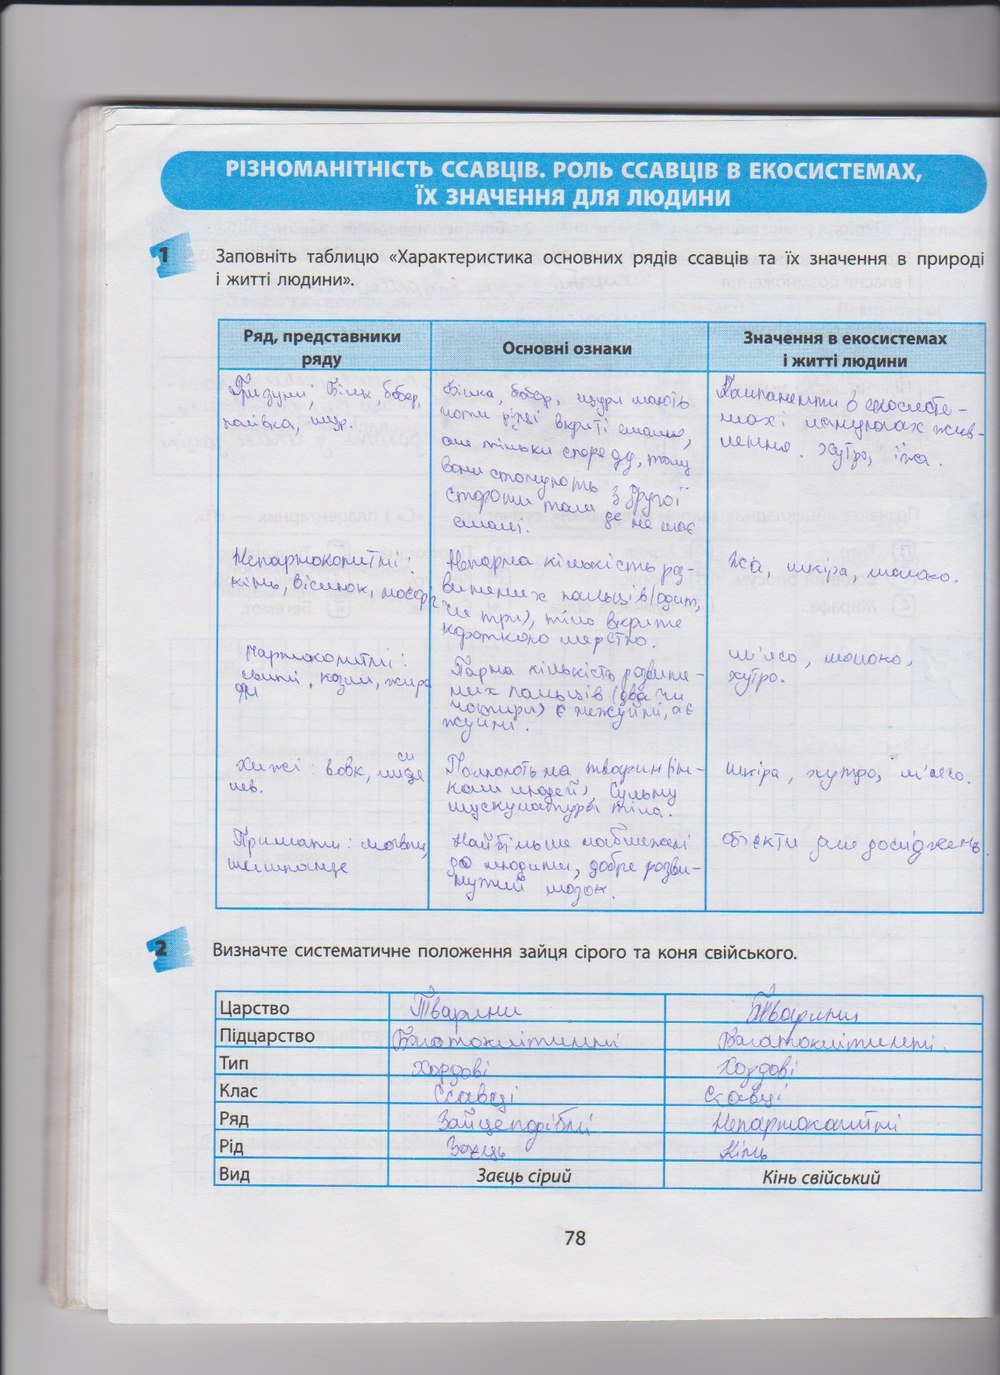 РІЗНОМАНІТНІСТЬ ССАВЦІВ. РОЛЬ ССАВЦІВ В ЕКОСИСТЕМАХ,
ЇХ ЗНАЧЕННЯ ДЛЯ ЛЮДИНИ
1
Заповніть таблицю «Характеристика основних рядів ссавців та їх значення в природі
і житті людини».
Ряд, представники
ряду
Основні ознаки
Значення в екосистемах
і житті людини
Гризуни; Білк, бобер,
полівка, щур.
Білка, бобер, щури мають
вкриті емаллю,
але тільки спереду, тому
вони сточують з другої
сторони
де не має
емалі.
Компоненти в екосисте-
мах і ланцюгах жив-
лення. Хутро, їжа.
Непарнокопитні:
кінь, віслюк, носоріг
Непарна кількість роз-
винених пальців (один,
чи три), тіло вкрите
короткою шерстю.
Їжа, шкіра, молоко.
Парнокопитні:
свині, козли, жира
фи
Парна кількість розвине-
них пальців (два чи
чотири) є нежуйні, а є
жуйні.
м'ясо, молоко,
хутро.
Хижі вовк,
лев.
Полюють на тварин (ін-
коли людей), Сильну
мускулатуру тіла.
шкіра, хутро, м'ясо.
Примати: мавпи,
шимпанзе
Найбільше наближені
до людини, добре розви-
нутий мозок.
Об'єкти для досліджень.
2
Визначте систематичне положення зайця сірого та коня свійського.
Царство Тварини Тварини
Підцарство Багатоклітинні Багатоклітинні.
Тип Хордові Хордові
Клас Ссавці Ссавці
Ряд Зайцеподібні Непарнокопитні
Рід Заєць Кінь
Вид Заєць сірий Кінь свійський
78